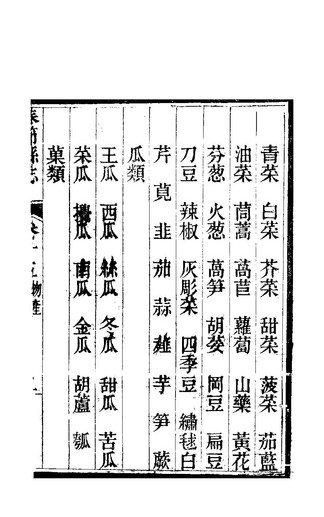 青菜 白菜 芥菜 甜菜 菠菜 茄藍
油菜 茼蒿 萵苣 蘿蔔 山藥 黃花
芬葱 火葱 萵笋 胡荽 岡豆 扁豆
刀豆 辣椒 灰彫菜 四季豆 繡毬白
芹 莧 韭 茄 蒜 薤 芋 笋 蕨
瓜類
王瓜 西瓜 絲瓜 冬瓜 甜瓜 苦瓜
菜瓜 瓜 南瓜 金瓜 胡蘆 瓠
菓類
縣志 物產